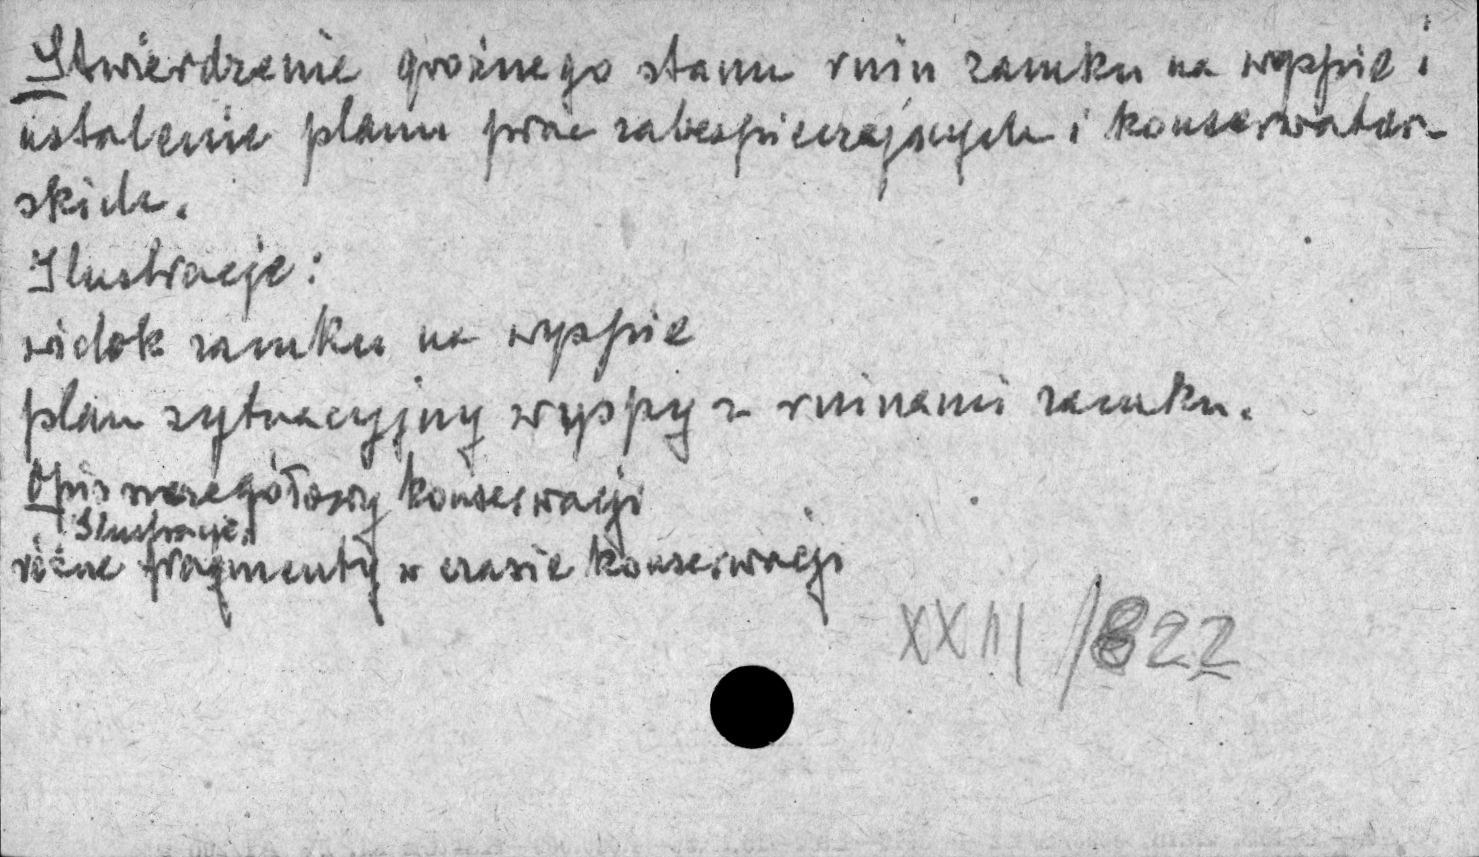 Stwierdzenie groźnego stanu ruin zamku na wyspie i
ustalenie planu prac zabezpieczających i konserwator-
skich.
Ilustracje:
widok zamku na wyspie
plan sytuacyjny wyspy z ruinami zamku.
Opis szczegółowy konserwacji
Ilustracje.
różne fragmenty w czasie konserwacji
XXIII/822